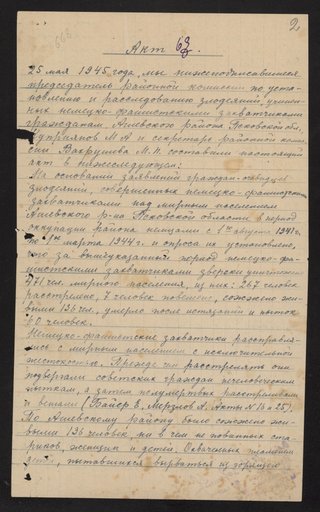 2
Акт 63.
25 мая 1945 года, мы нижеподписавшиеся
председатель районной комиссии по уста-
новлению и расследованию злодеяний, учинен-
ных немецко-фашистскими захватчиками
гражданам Ашевского района Псковской обл.,
М.А. и секретарь районной комис-
сии Вахрушева М.П. составили настоящий
акт в нижеследующем:
На основании заявлений граждан-очевидцев
злодеяний, совершенных немецко-фашистскими
захватчиками над мирным населением
Ашевского р-на Псковской области в период
оккупации района немцами с 1го августа 1941 г.
по 1 марта 1944 г. и опроса их установлено,
что за вышеуказанный период немецко-фа-
шистскими захватчиками зверски уничтожено
471 чел. мирного населения, из них: 267 человек
расстреляно, 7 человек повешено, сожжено жи-
выми 136 чел., умерло после истязаний и пыток
60 человек.
Немецко-фашистские захватчики расправля-
лись с мирным населением с исключительной
жестокостью. Прежде чем расстрелять они
подвергали советских граждан нечеловеческим
пыткам, а затем полумертвых расстреливали
и вешали (Байер Е., Мерзлов А. Акты N 16 и 25).
По Ашевскому району было сожжено жи-
выми 136 человек, ни в чем не повинных ста-
риков, женщин и детей. Охваченных пламенем
детей, пытавшихся вырваться из горящего